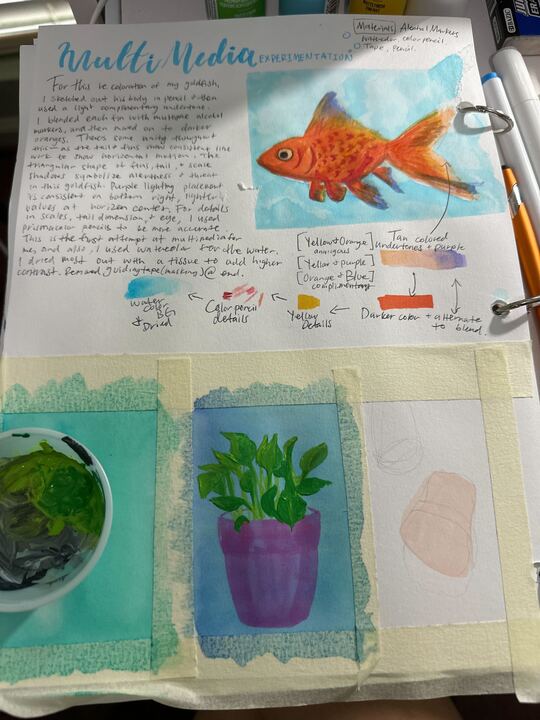 MultiMedia EXPERIMENTATION
Materials: Alcohol Markers,
watercolor, color pencil
Tape, Pencil.
For this re coloration of my goldfish,
I sketched out his body in pencil + then
used a light of complimentary undertone.
I blended each fin with multiple alcohol
markers, and then moved on to darker
oranges. There's some unity throughout
this as the tail + fins show consistent line
work to show horizontal motion. The
triangular shape in fins, tail, + scale
shadows symbolize alertness + threat
in this goldfish. Purple lighting placement
is consistent on bottom right, lighter
values at horizon center. For details
in scales, tail dimension, + eye, I used
prismacolor pencils to be more accurate
This is the first attempt at multimedia for
me, and also, I used watercolor for the water.
I dried most out with a tissue to add higher
contrast. Removed guiding tape (masking) @ end.
[Yellow + Orange]
analogous
[Yellow + purple]
[Orange + Blue]
complimentary
Tan colored
undertones + purple
water
color
BG
+
Dried
Color pencil
details
Yellow
Details
Darker color + alternate
to blend.